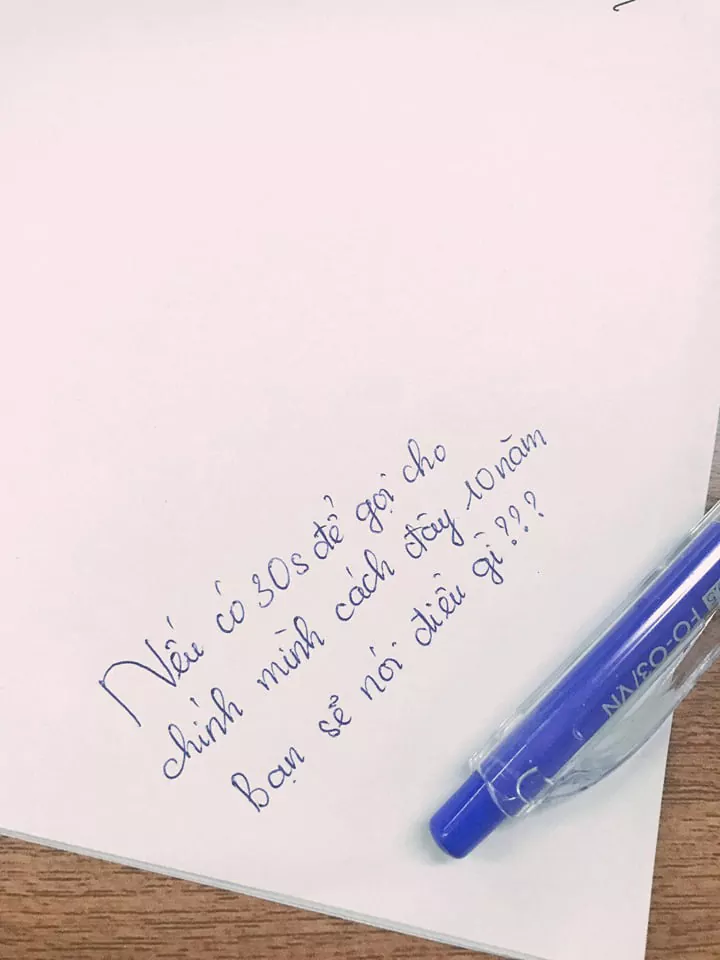 Nếu có 30s để gọi cho
chính mình cách đây 10 năm
Bạn sẽ nói điều gì???
FO-03/VN